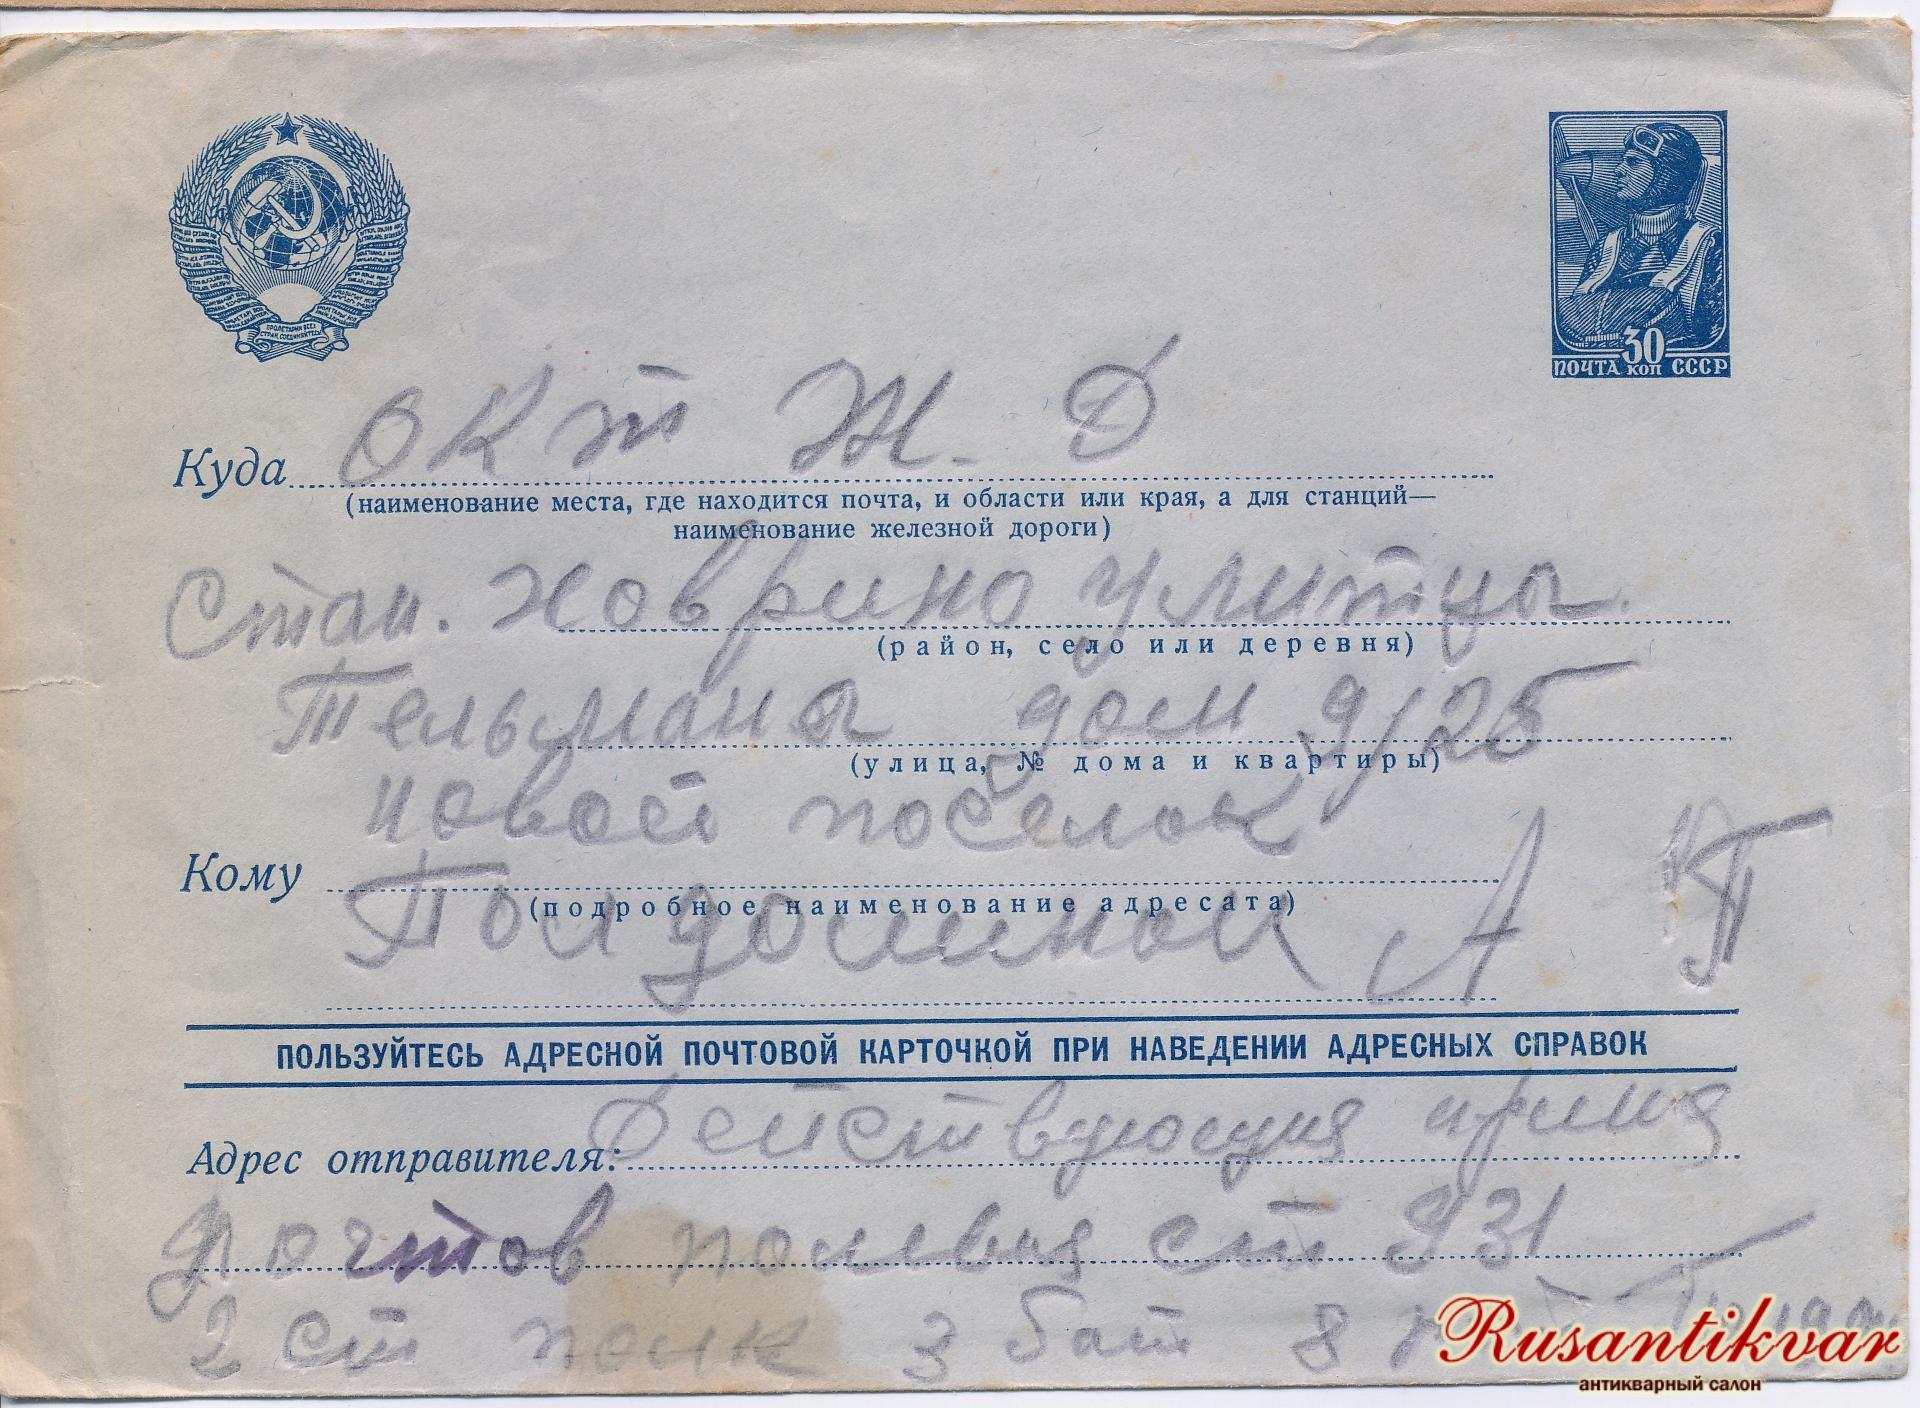 ПРОЛЕТАРИИ ВСЕХ
СТРАН, СОЕДИНЯЙТЕСЬ!
30
ПОЧТА коп СССР
Окт Ж. Д
Куда
(наименование места, где находится почта, и области или края, а для станций—
наименование железной дороги)
Стан. Ховрино улитцы
(район, село или деревня)
Тельманы дом 9/25
(улица, № дома и квартиры)
новой посёлок
Кому
(подробное наименование адресата)
А П
ПОЛЬЗУЙТЕСЬ АДРЕСНОЙ ПОЧТОВОЙ КАРТОЧКОЙ ПРИ НАВЕДЕНИИ АДРЕСНЫХ СПРАВОК
Действующия
Адрес отправителя:
почтов полевая ст 931
2 ст полк 3 бат 8
Rusantikvar
антикварный салон